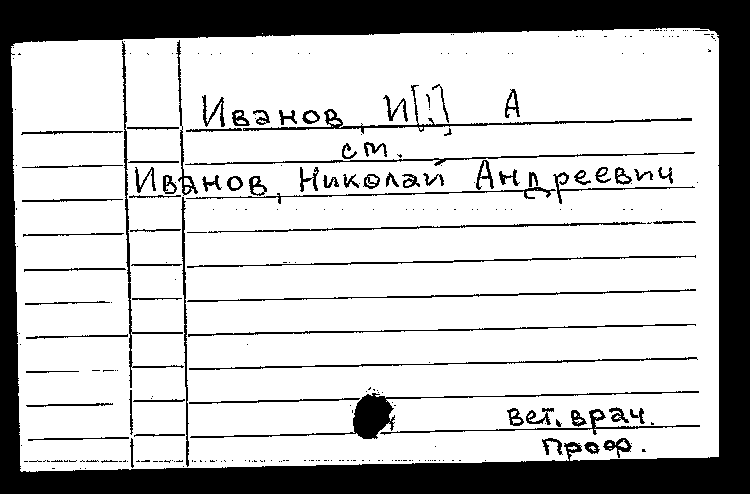 Иванов, И[!] А
ст.
Иванов, Николай Андреевич
вет. врач.
Проф.